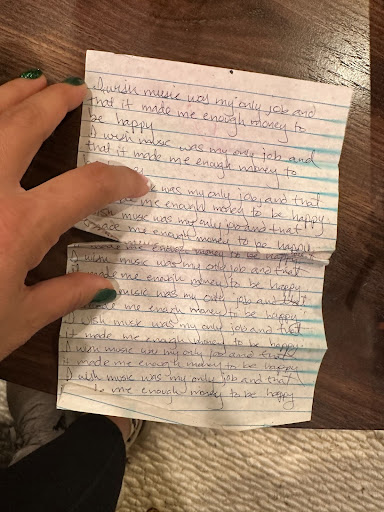 I wish music was my only job and
that it made me enough money to
be happy
I wish music was my only job and
that it made me enough money to
was my only job and that
me enough money to be happy
music was my only job and that
made me enough money to be happy
enough money to be happy
I wish music was my only job and that
made me enough money to be happy
music was my only job and that
made me enough money to be happy
wish music was my only job and that
it made me enough money to be happy
I wish music was my only job and that
it made me enough money to be happy
I wish music was my only job and that
me enough money to be happy